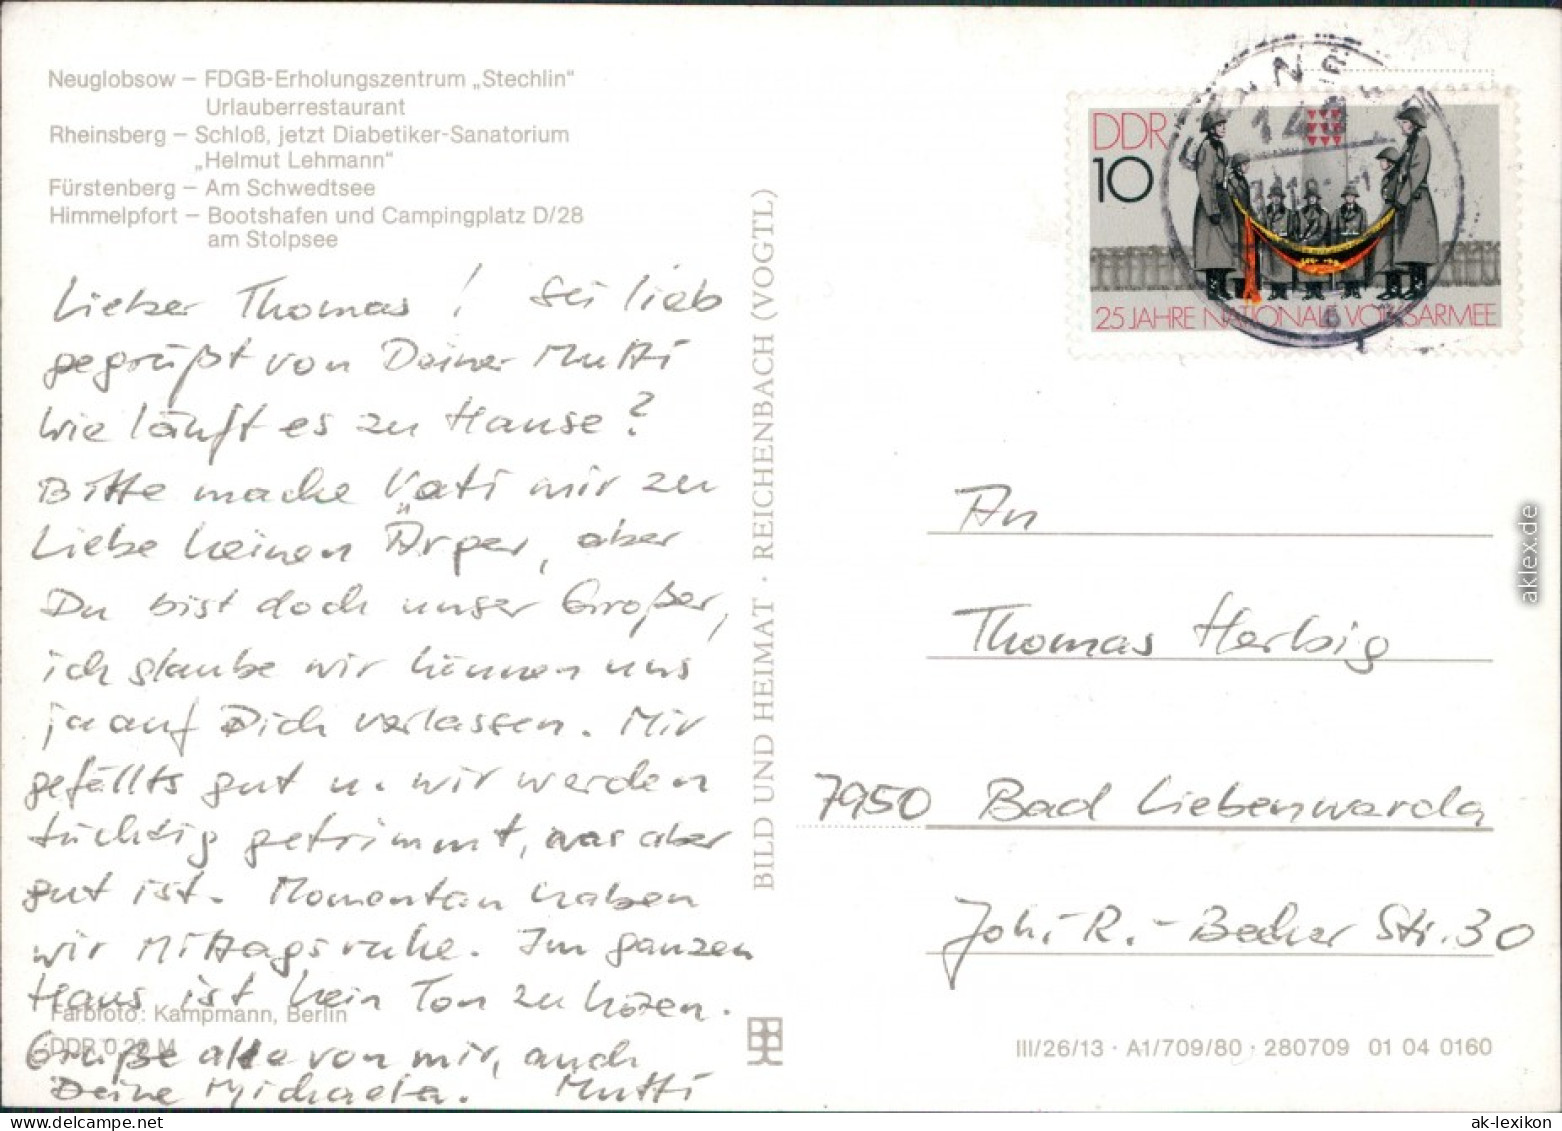 Neuglobsow – FDGB-Erholungszentrum „Stechlin“
Urlauberrestaurant
Rheinsberg – Schloß, jetzt Diabetiker-Sanatorium
„Helmut Lehmann“
Fürstenberg – Am Schwedtsee
Himmelpfort – Bootshafen und Campingplatz D/28
am Stolpsee
Lieber Thomas! Sei lieb
gegrüßt von Deiner Mutti
Wie läuft es zu Hause?
Bitte mache Vati mir zu
Liebe keinen Ärger, aber
Du bist doch unser Großer,
ich glaube wir können uns
ja auf Dich verlassen. Mir
gefällts gut u. wir werden
tüchtig getrimmt, was aber
gut ist. Momentan haben
wir Mittagsruhe. Im ganzen
Haus ist kein Ton zu hören.
Farbfoto: Kampmann, Berlin
DDR 0,20 M
Grüße alle von mir, auch
Deine Michaela. Mutti
BILD UND HEIMAT · REICHENBACH (VOGTL)
DDR
10
25 JAHRE NATIONALE VOLKSARMEE
An
Thomas Herbig
7950 Bad Liebenwerda
Joh.-R.-Becher Str. 30
III/26/13 · A1/709/80 · 280709 01 04 0160
aklex.de
ak-lexikon